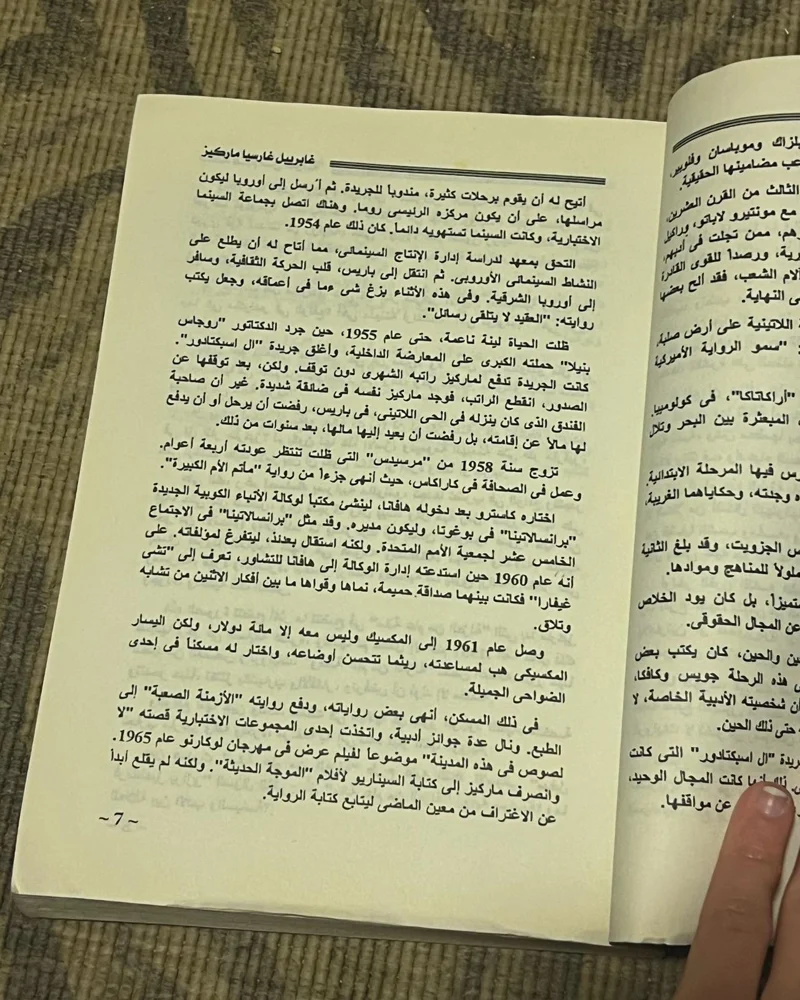 غابرييل غارسيا ماركيز
أتيح له أن يقوم برحلات كثيرة، مندوباً للجريدة. ثم أرسل إلى أوروبا ليكون
مراسلها، على أن يكون مركزه الرئيسى روما. وهناك اتصل بجماعة السينما
الاختبارية، وكانت السينما تستهويه دائماً. كان ذلك عام 1954.
التحق بمعهد لدراسة إدارة الإنتاج السينمائى، مما أتاح له أن يطلع على
النشاط السينمائى الأوروبى. ثم انتقل إلى باريس، قلب الحركة الثقافية، وسافر
إلى أوروبا الشرقية. وفى هذه الأثناء بزغ شى ءما فى أعماقه، وجعل يكتب
روايته: "العقيد لا يتلقى رسائل".
ظلت الحياة لينة ناعمة، حتى عام 1955، حين جرد الدكتاتور "روجاس
بنيلا" حملته الكبرى على المعارضة الداخلية، وأغلق جريدة "ال اسبكتادور".
كانت الجريدة تدفع لماركيز راتبه الشهرى دون توقف. ولكن، بعد توقفها عن
الصدور، انقطع الراتب، فوجد ماركيز نفسه فى ضائقة شديدة. غير أن صاحبة
الفندق الذى كان ينزله فى الحى اللاتينى، فى باريس، رفضت أن يرحل أو أن يدفع
لها مالاً عن إقامته، بل رفضت أن يعيد إليها مالها، بعد سنوات من ذلك.
تزوج سنة 1958 من "مرسيدس" التى ظلت تنتظر عودته أربعة أعوام.
وعمل فى الصحافة فى كاراكاس، حيث أنهى جزءاً من رواية "مأتم الأم الكبيرة".
اختاره كاسترو بعد دخوله هافانا، لينشئ مكتباً لوكالة الأنباء الكوبية الجديدة
"برانسالاتينا" فى بوغوتا، وليكون مديره. وقد مثل "برانسالاتينا" فى الاجتماع
الخامس عشر لجمعية الأمم المتحدة. ولكنه استقال بعدئذ، ليتفرغ لمؤلفاته. على
أنه عام 1960 حين استدعته إدارة الوكالة إلى هافانا للتشاور، تعرف إلى "تشى
غيفارا" فكانت بينهما صداقة حميمة، نماها وقواها ما بين أفكار الاثنين من تشابه
وتلاق.
وصل عام 1961 إلى المكسيك وليس معه إلا مائة دولار، ولكن اليسار
المكسيكى هب لمساعدته، ريثما تتحسن أوضاعه، واختار له مسكناً فى إحدى
الضواحى الجميلة.
فى ذلك المسكن، أنهى بعض رواياته، ودفع روايته "الأزمنة الصعبة" إلى
الطبع. ونال عدة جوائز أدبية، واتخذت إحدى المجموعات الاختبارية قصته "لا
لصوص فى هذه المدينة" موضوعاً لفيلم عرض فى مهرجان لوكارنو عام 1965.
وانصرف ماركيز إلى كتابة السيناريو لأفلام "الموجة الحديثة". ولكنه لم يقلع أبداً
عن الاغتراف من معين الماضى ليتابع كتابة الرواية.
~ 7 ~
بلزاك وموباسان وفلوبير،
مضامينها الحقيقية.
الثالث من القرن العشرين،
مع مونتيرو لاباتو،
ممن تجلت فى أدبهم
ورصداً للقوى
آلام الشعب، فقد ألح بعضها
النهاية.
اللاتينية على أرض صلبة.
"سمو الرواية الأميركية
"أراكاتاكا"، فى كولومبيا.
المبعثرة بين البحر وتلال
فيها المرحلة الابتدائية.
وجدته، وحكاياهما الغريبة.
الجزويت، وقد بلغ الثانية
للمناهج وموادها.
بل كان يود الخلاص
عن المجال الحقوقى.
والحين، كان يكتب بعض
هذه الرحلة جويس وكافكا،
شخصيته الأدبية الخاصة، لا
حتى ذلك الحين.
"ال اسبكتادور" التى كانت
كانت المجال الوحيد،
عن مواقفها.